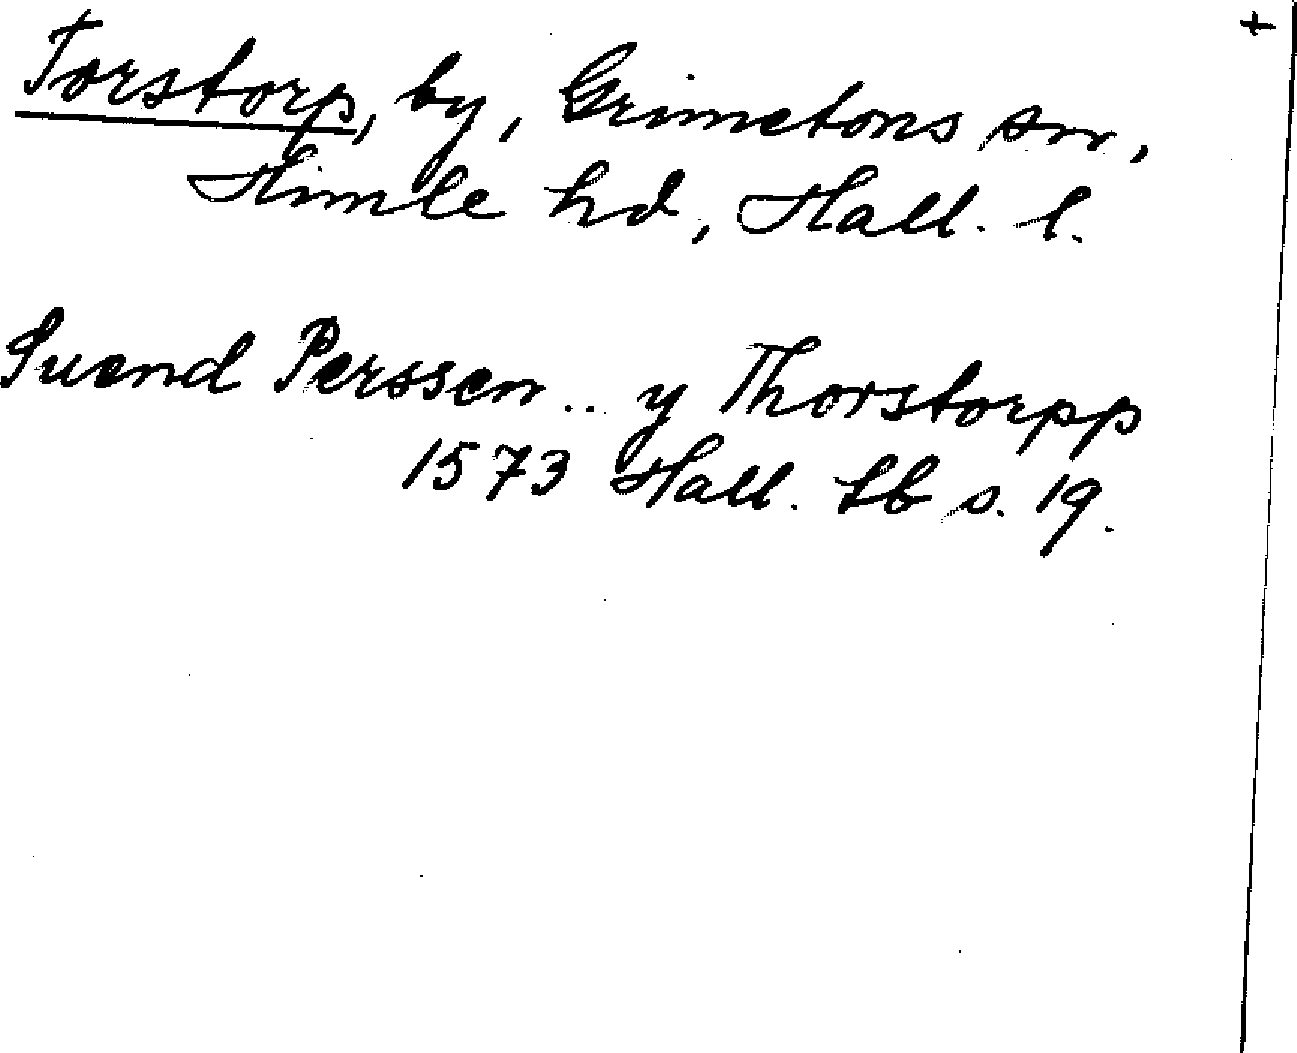 +
Torstorp, by, Grimetons sn,
Himle hd, Hall. l.
Suend Perssen .. y Thorstorpp
1573 Hall. Lb s. 19.